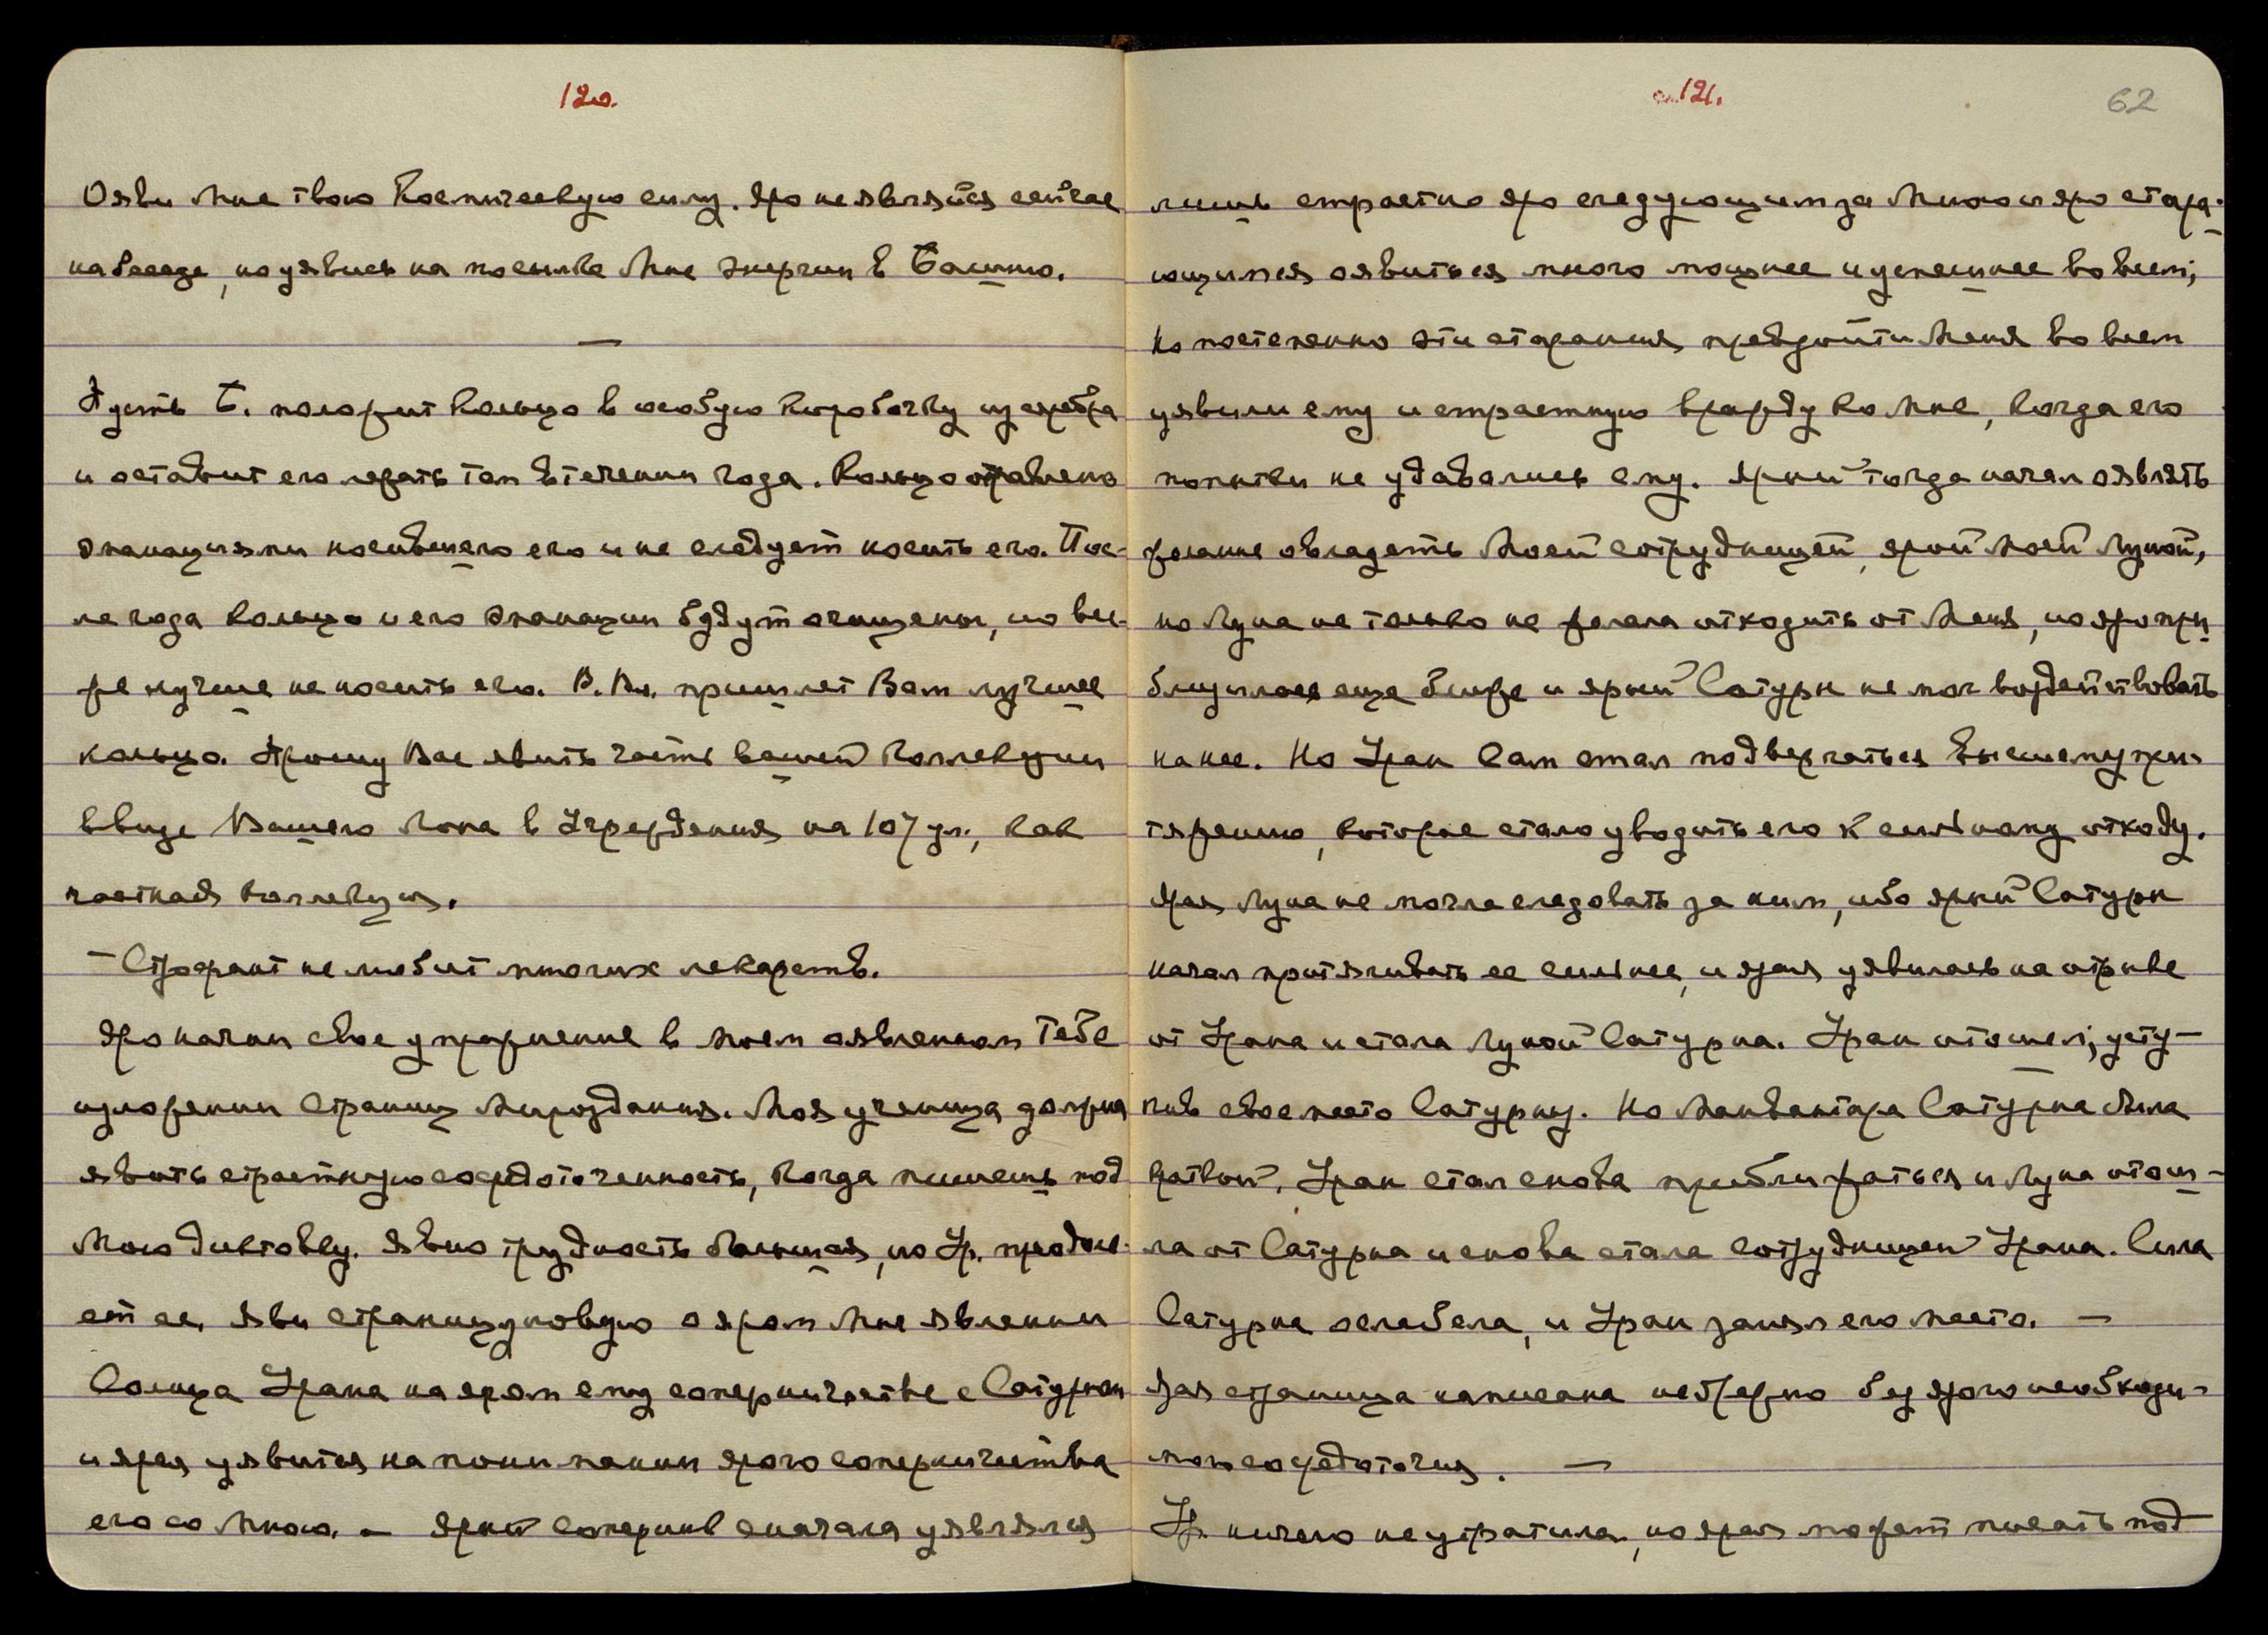 120.
Ояви Мне твою Космическую силу. Яро не являйся сейчас
на беседе, но уявись на посылке Мне энергии в Башню.
—
Пусть Б. положит кольцо в особую коробочку из серебра
и оставит его лежать там в течении года. Кольцо отравлено
эманациями носившего его и не следует носить его. Пос-
ле года кольцо и его эманации будут очищены, но все-
же лучше не носить его. В. Вл. пришлет Вам лучшее
кольцо. Прошу Вас явить часть вашей коллекции
ввиде Вашего Лона в Учреждения на 107 ул., как
частная коллекция.
– Строфант не любит многих лекарств.
Яро начни свое упражнение в моем оявленном тебе
изложении страниц Мироздания. Моя ученица должна
явить страстную сосредоточенность, когда пишешь под
Мою диктовку. Явно трудность большая, но Ур. преодоле-
ет ее. Яви страницу новую о яром Мне явлении
Солнца Урана на яром ему соперничестве с Сатурном
и ярая уявится на понимании ярого соперничества
его со Мною. – Ярый соперник сначала уявлялся
121.
62
лишь страстно яро следующим за Мною и яро стара-
ющимся оявиться много мощнее и успешнее во всем;
Но постепенно эти старания превзойти Меня во всем
уявили ему и страстную вражду ко Мне, когда его
попытки не удавались ему. Ярый тогда начал оявлять
желание овладеть Моей сотрудницей, ярой Моей Луной,
но Луна не только не желала отходить от Меня, но яро при-
близилась еще ближе и ярый Сатурн не мог воздействовать
на нее. Но Уран Сам стал подвергаться Высшему при-
тяжению, которое стало уводить его к сильному отходу.
Ярая Луна не могла следовать за ним, ибо ярый Сатурн
начал притягивать ее сильнее, и ярая уявилась на отрыве
от Урана и стала Луной Сатурна. Уран отошел, усту-
пив свое место Сатурну. Но Манвантара Сатурна была
краткой, Уран стал снова приближаться и Луна отош-
ла от Сатурна и снова стала сотрудницей Урана. Сила
Сатурна ослабела, и Уран занял его место. —
Ярая страница написана небрежно без ярого необходи-
мого сосредоточия. —
Ур. ничего не утратила, но ярая может писать под